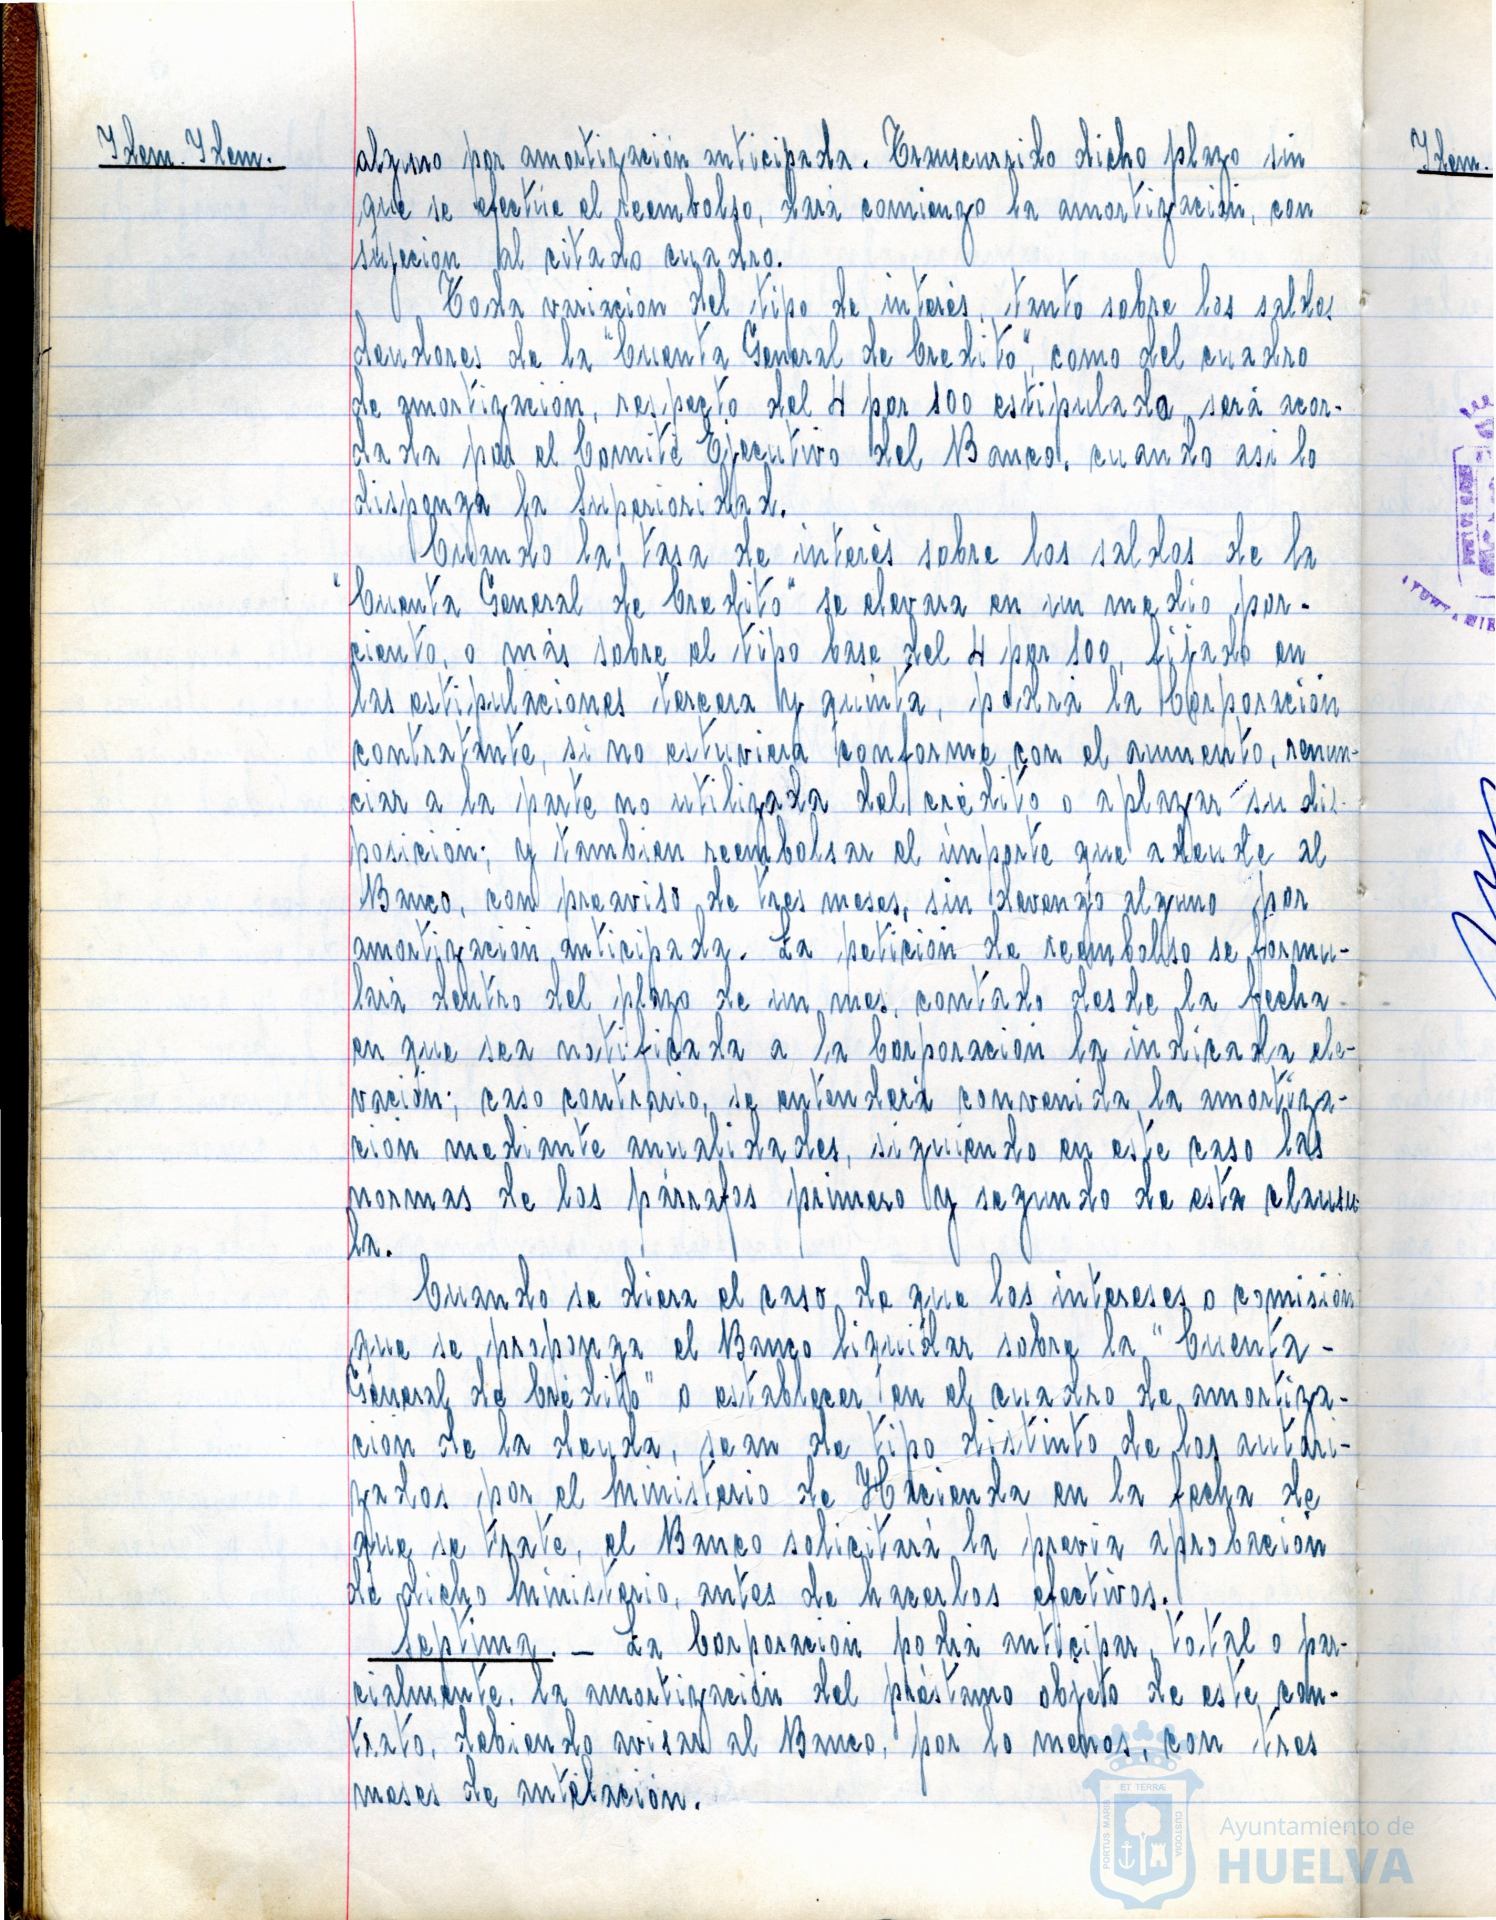 Idem. Idem.
alguno por amortización anticipada. Transcurrido dicho plazo sin
que se efectúe el reembolso, dará comienzo la amortización, con
sujeción al citado cuadro.
Toda variación del tipo de interés, tanto sobre los saldos
deudores de la "Cuenta General de Crédito", como del cuadro
de amortización, respecto del 4 por 100 estipulado, será acor-
dada por el Comité Ejecutivo del Banco, cuando así lo
disponga la Superioridad.
Cuando la tasa de interés sobre los saldos de la
"Cuenta General de Crédito" se elevara en un medio por-
ciento, o más sobre el tipo base del 4 por 100, fijado en
las estipulaciones tercera y quinta, podrá la Corporación
contratante, si no estuviera conforme con el aumento, renun-
ciar a la parte no utilizada del crédito o aplazar su dis-
posición; y también reembolsar el importe que adeude al
Banco, con preaviso de tres meses, sin devengo alguno por
amortización anticipada. La petición de reembolso se formu-
lará dentro del plazo de un mes, contado desde la fecha -
en que sea notificada a la Corporación la indicada ele-
vación; caso contrario, se entenderá convenida la amortiza-
ción mediante anualidades, siguiendo en este caso las
normas de los párrafos primero y segundo de esta clausu-
la.
Cuando se diera el caso de que los intereses o comisión
que se proponga el Banco liquidar sobre la "Cuenta -
General de Crédito" o establecer en el cuadro de amortiza-
ción de la deuda, sean de tipo distinto de los autori-
zados por el Ministerio de Hacienda en la fecha de
que se trate, el Banco solicitará la previa aprobación
de dicho Ministerio, antes de hacerlos efectivos.
Septima. - La Corporación podrá anticipar, total o par-
cialmente, la amortización del préstamo objeto de este con-
trato, debiendo avisar al Banco, por lo menos, con tres
meses de antelación.
Idem.
ET TERRÆ
PORTUS MARIS
CUSTODIA
Ayuntamiento de
HUELVA